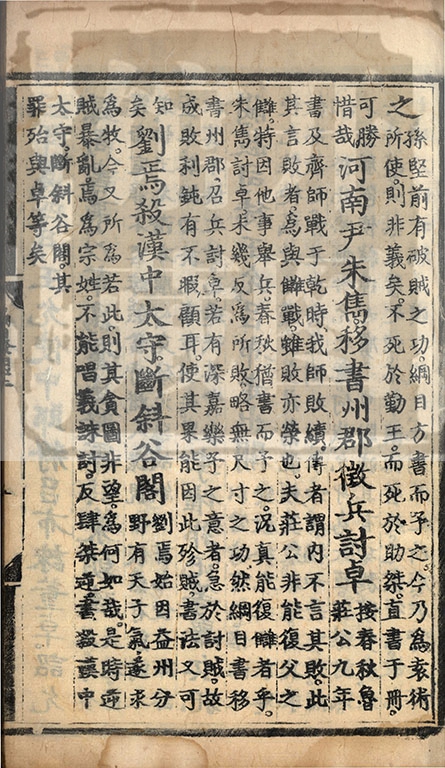 之
孫堅前有破賊之功。綱目方書而予之。今乃為袁術
所使。則非義矣。不死於勤王。而死於助桀。直書于冊。
可勝
惜哉
河南尹朱雋移書州郡徵兵討卓
按春秋魯
莊公九年
書及齊師戰于乾時我師敗績。傳者謂內不言其敗。此
其言敗者。為與讎戰。雖敗亦榮也。夫莊公非能復父之
讎。特因他事舉兵。春秋猶書而予之。況真能復讎者乎。
朱雋討卓。未幾反為所敗。略無尺寸之功。然綱目書移
書州郡召兵討卓。若有深嘉樂予之意者。急於討賊。故
成敗利鈍有不暇顧耳。使其果能因此殄賊。書法又可
知
矣
劉焉殺漢中太守斷斜谷閣
劉焉始因益州分
野有天子氣。遂求
為牧。今又所為若此。則其貪圖非望。為何如哉。是時逆
賊暴亂。焉為宗姓。不能唱義誅討。反肆桀逆。書殺漢中
太守。斷斜谷閣。其
罪殆與卓等矣